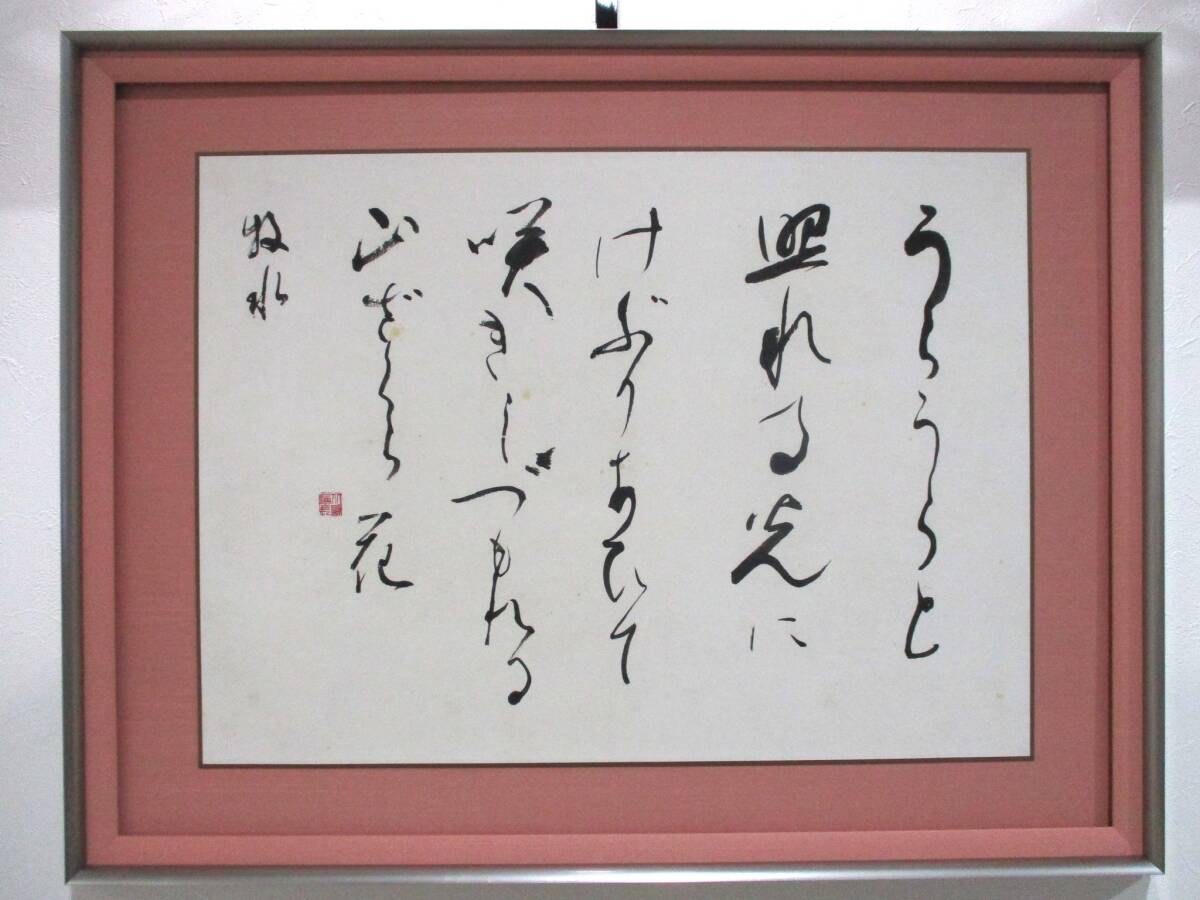 うらうらと
照れる光に
けぶりあひて
咲きしづもれる
山ざくら花
牧水